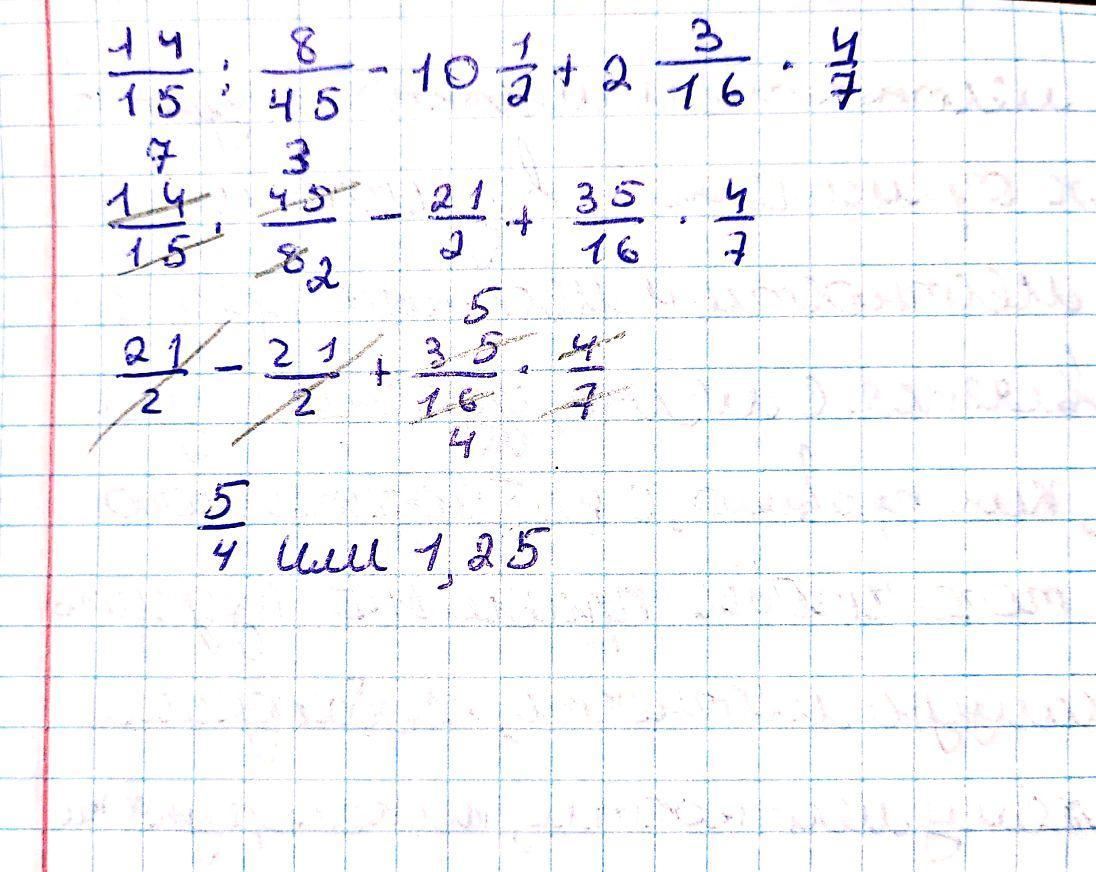 14/15 : 8/45 - 10 1/2 + 2 3/16 · 4/7
7 3
14/15 · 45/8 - 21/2 + 35/16 · 4/7
2
5
21/2 - 21/2 + 35/16 · 4/7
4
5/4 или 1,25